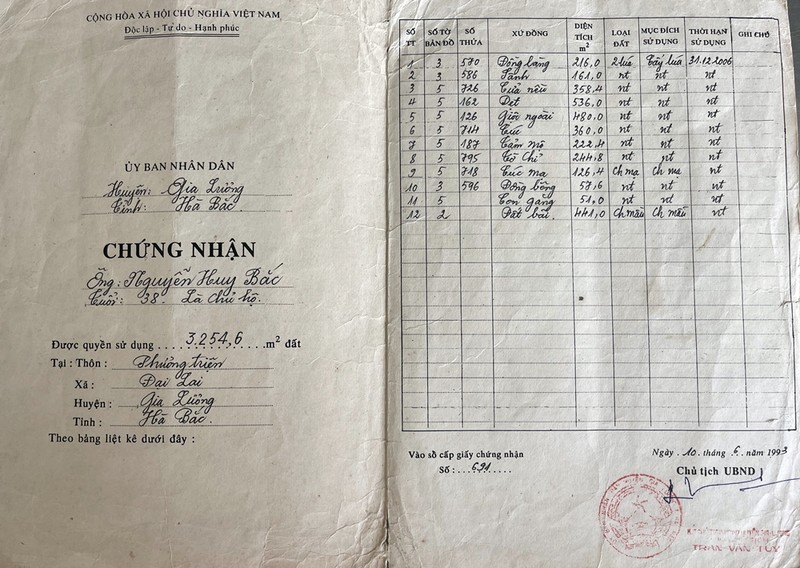 CỘNG HÒA XÃ HỘI CHỦ NGHĨA VIỆT NAM
Độc lập - Tự do - Hạnh phúc
ỦY BAN NHÂN DÂN
Huyện: Gia Lương
Tỉnh: Hà Bắc
CHỨNG NHẬN
Ông: Nguyễn Huy Bắc
Tuổi: 38. Là chủ hộ.
Được quyền sử dụng 3.254,6 m² đất
Tại : Thôn : Phương triện
Xã : Đại Lai
Huyện : Gia Lương
Tỉnh : Hà Bắc.
Theo bảng liệt kê dưới đây :
SỐ TT SỐ TỜ BẢN ĐỒ SỐ THỬA XỨ ĐỒNG DIỆN TÍCH m² LOẠI ĐẤT MỤC ĐÍCH SỬ DỤNG THỜI HẠN SỬ DỤNG GHI CHÚ
1 3 570 Đồng bằng 216,0 2 lúa Cấy lúa 31.12.2006
2 3 586 Tánh 161,0 nt nt nt
3 5 726 Cửa nều 358,4 nt nt nt
4 5 162 Dẹt 536,0 nt nt nt
5 5 126 Giữa ngoài 480,0 nt nt nt
6 5 714 360,0 nt nt nt
7 5 187 222,4 nt nt nt
8 5 795 244,8 nt nt nt
9 5 718 126,4 Ch mạ Ch mạ nt
10 3 596 Đồng bông 57,6 nt nt nt
11 5 51,0 nt nt nt
12 2 Đất bãi 441,0 Ch mầu Ch mầu nt
Vào sổ cấp giấy chứng nhận
Số : 691
Ngày 10 tháng 6 năm 1993
Chủ tịch UBND
TRẦN VĂN TÚY